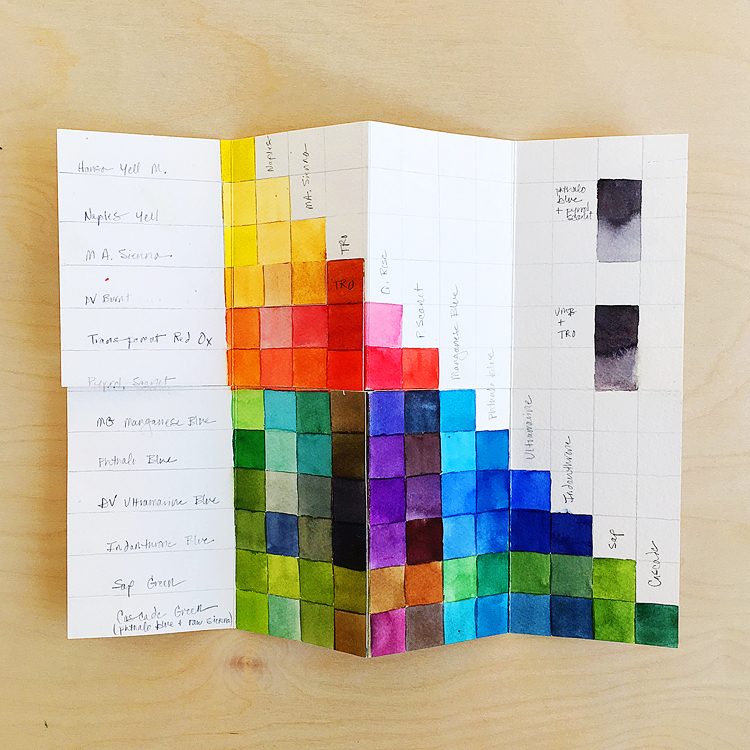 Hansa Yell M.
Naples Yell
M A. Sienna
DV Burnt
Transparent Red Ox
Pyrrol Scarlet
MG Manganese Blue
Phthalo Blue
DV Ultramarine Blue
Indanthrone Blue
Sap Green
Cascade Green
(phthalo blue + raw sienna)
Naples
MA. Sienna
TRO
TRO
Q. Rose
P Scarlet
Manganese Blue
Phthalo blue
Ultramarine
Indanthrone
Sap
Cascade
phthalo
blue
+ pyrrol
scarlet
UMB
+
TRO